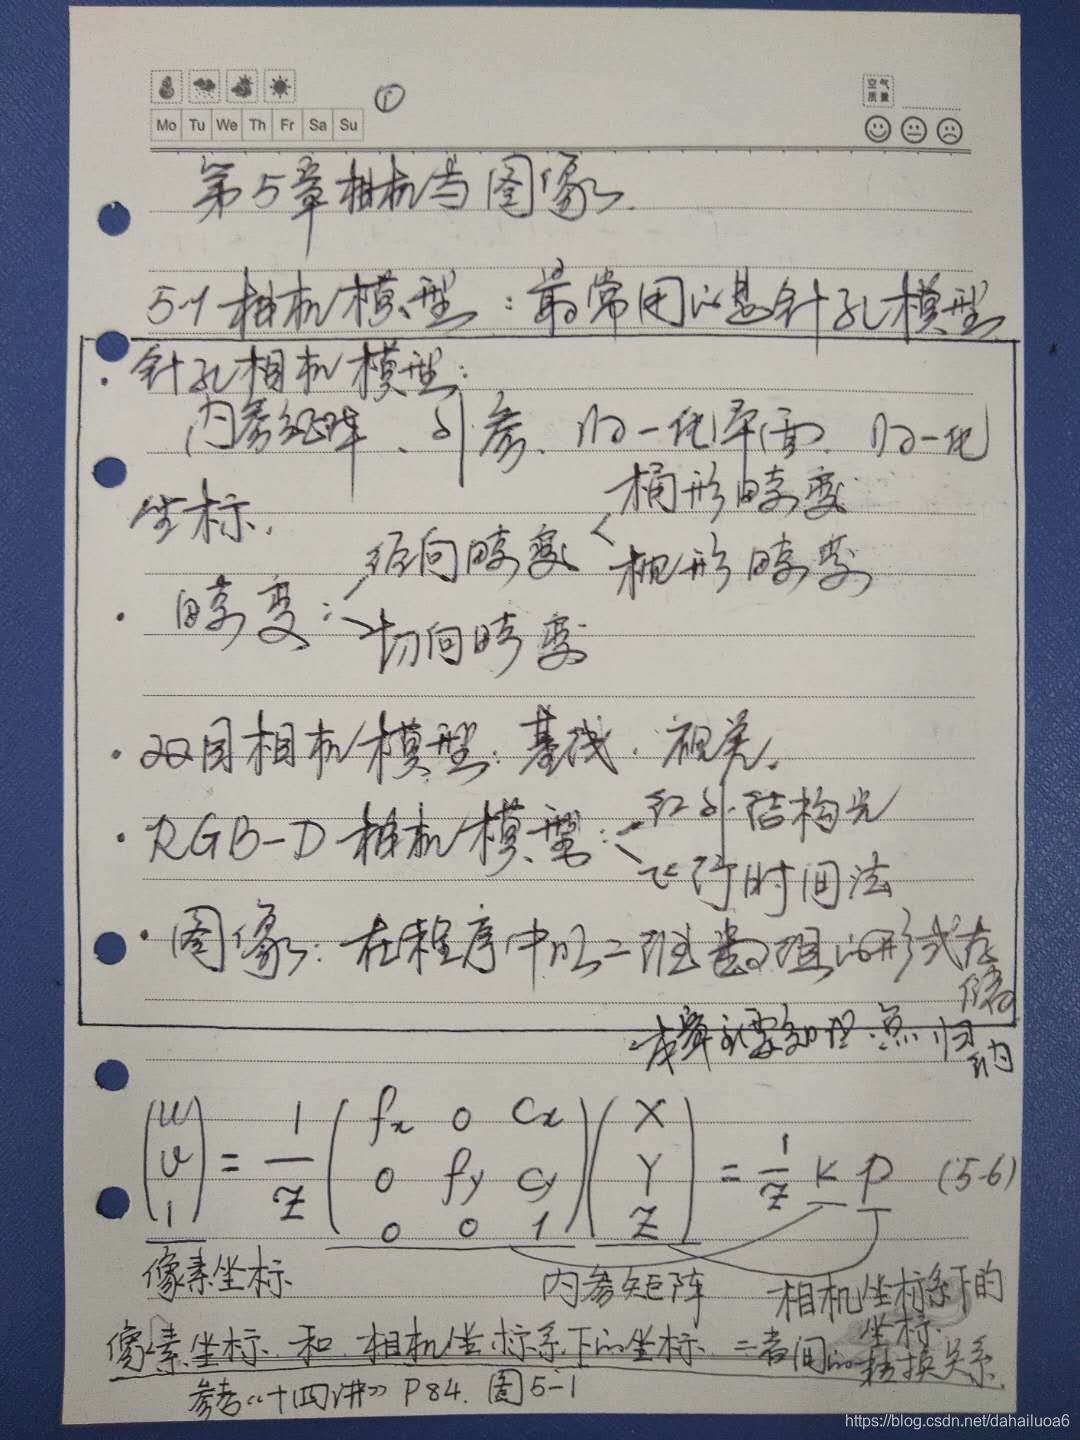 空气
质量
Mo Tu We Th Fr Sa Su
①
第5章相机与图像.
5-1 相机模型：最常用的是针孔模型
· 针孔相机模型：
内参矩阵、外参、归一化平面、归一化
坐标.
· 畸变：
径向畸变
桶形畸变
枕形畸变
切向畸变
· 双目相机模型：基线. 视差.
· RGB-D 相机模型：
红外结构光
飞行时间法
· 图像：在程序中以二维数组的形式存
储
本章主要知识点归
纳
(u v 1) = 1/Z (fx 0 cx 0 fy cy 0 0 1) (X Y Z) = 1/Z K P (5-6)
像素坐标
内参矩阵
相机坐标系下的
坐标.
像素坐标 和 相机坐标系下的坐标 二者间的转换关系.
参考《十四讲》P84. 图5-1
https://blog.csdn.net/dahailuoa6